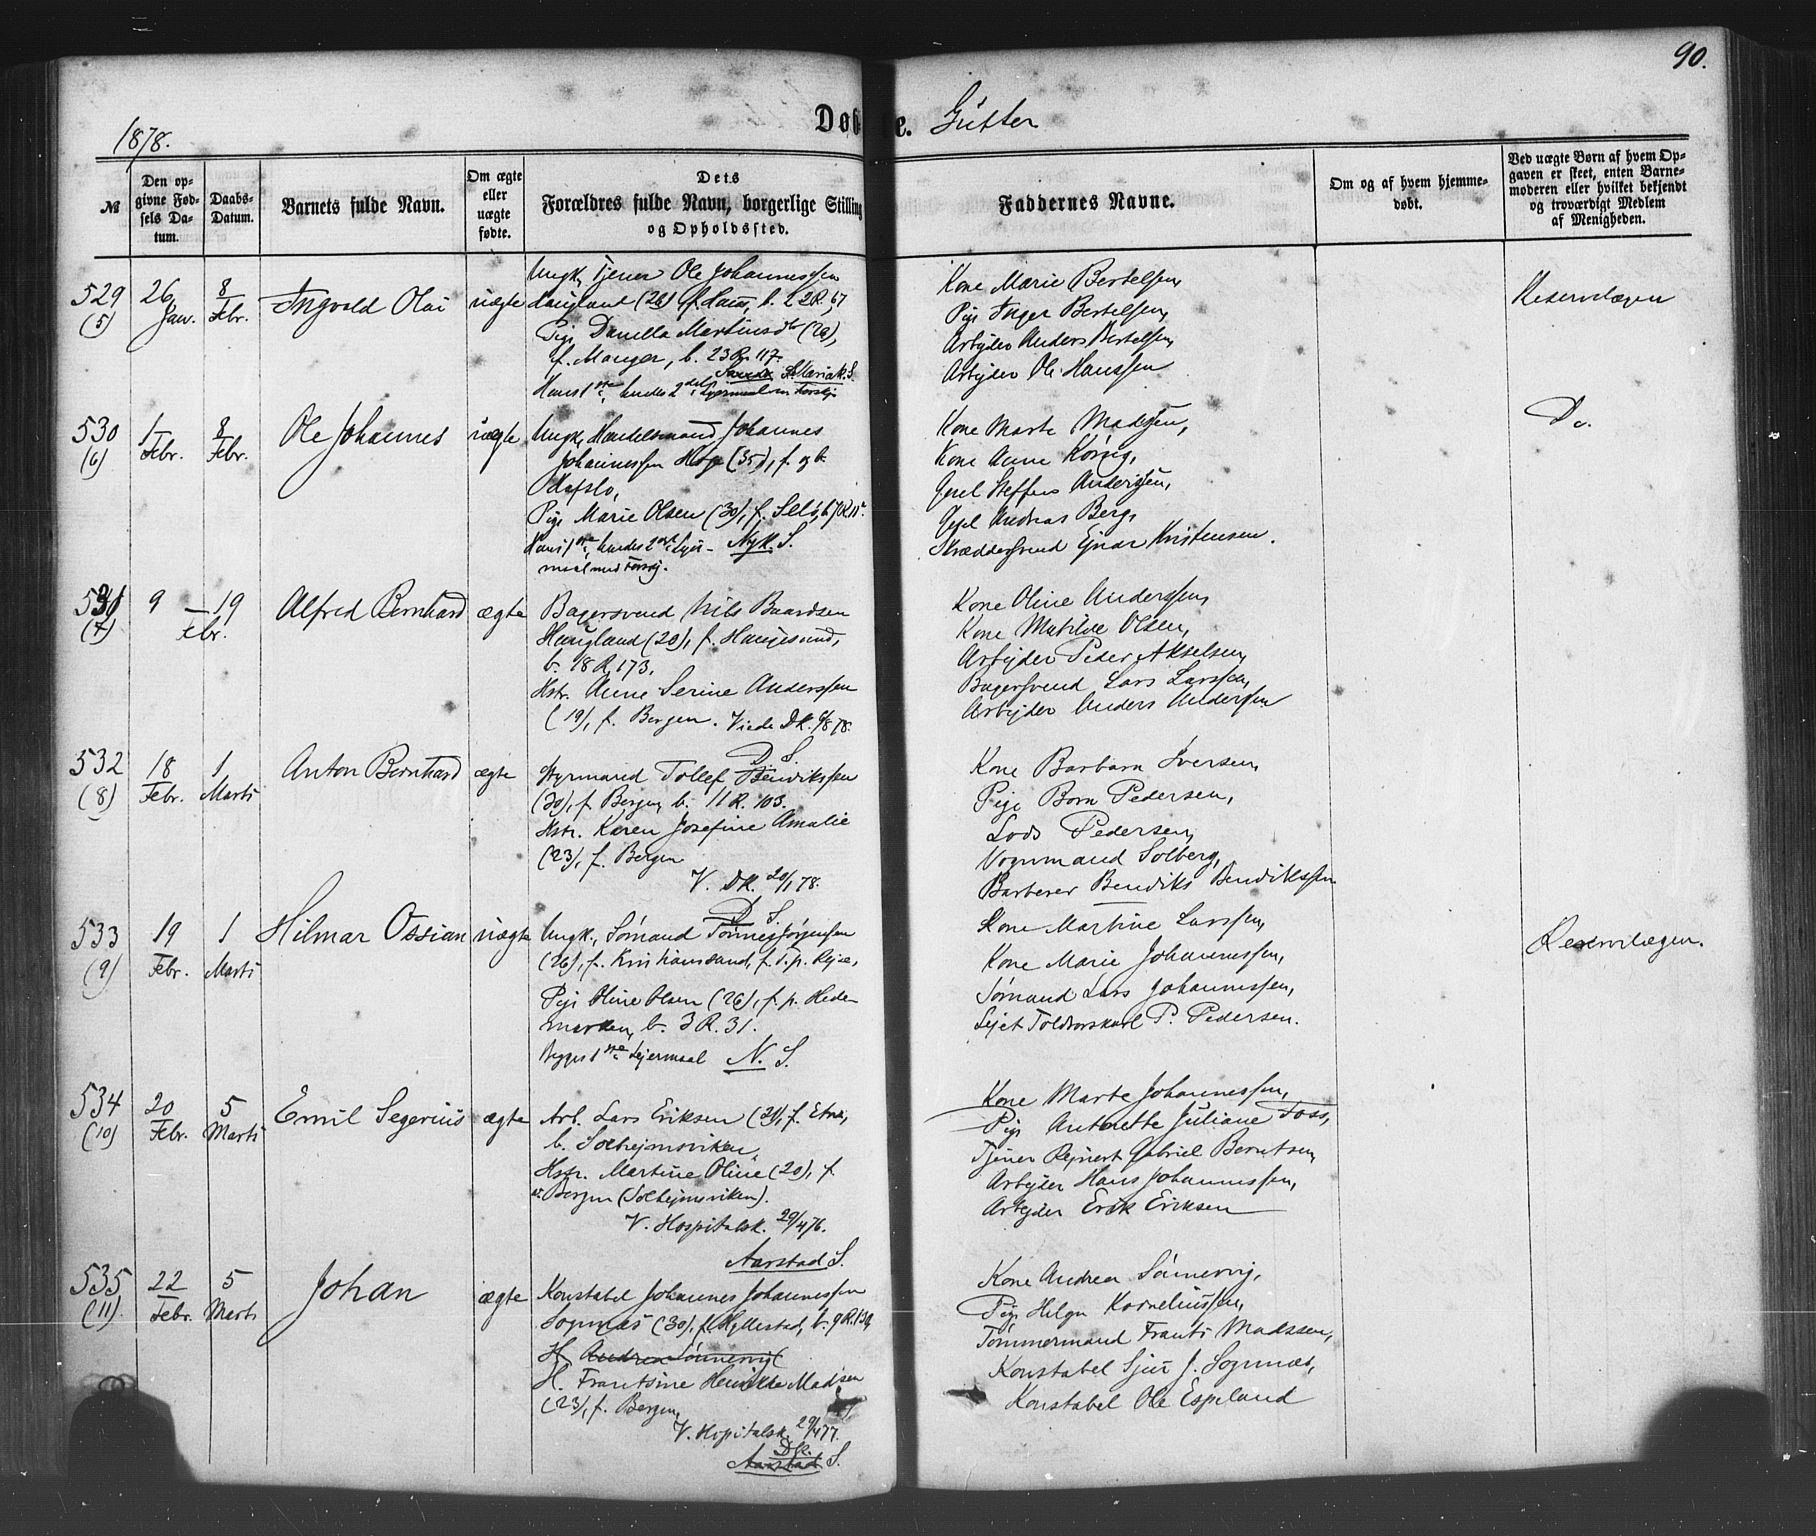 90.
1878.
Døb e. Gutter
№
Den op-
givne Fød-
sels Da-
tum.
Daabs-
Datum.
Barnets fulde Navn.
Om ægte
eller
uægte
fødte.
Dets
Forældres fulde Navn, borgerlige Stilling
og Opholdssted.
Faddernes Navne.
Om og af hvem hjemme-
døbt.
Ved uægte Børn af hvem Op-
gaven er skeet, enten Barne-
moderen eller hvilket bekjendt
og troværdigt Medlem
af Menigheden.
529
(5)
26
Jan.
8
Febr.
Ingvald Olai
uægte
Ungk. Tjener Ole Johannessen
Haugland (26) f. Haus, b. 22R. 67
Pige Danella Martinsdtr (29),
f. Manger, b. 23R. 117.
Sandv. St. Mariak. S.
Hans 1ste, hendes 2det Lejermaal m Forskj.
Kone Marie Bertelsen,
Pige Inger Bertelsen,
Arbejder Anders Bertelsen,
Arbejder Ole Hanssen
Reservelægen
530
(6)
1
Febr.
8
Febr.
Ole Johannes
uægte
Ungk. Handelsmand Johannes
Johannessen Hage (35), f. og b.
Hafslo,
Pige Marie Olsen (30), f. Selø, b. 7R 11a.
Hans 1ste, hendes 2det Lejer- Nyk. S.
maal med Forskj.
Kone Marte Madsen,
Kone Anne König,
Gesel Steffens Anderssen,
Gesel Andreas Berg,
Skræddersvend Ejnar Kristensen.
Do.
531
(7)
9 — 19
Febr.
Alfred Bernhard
ægte
Bagersvend Nils Baardsen
Haugland (20), f. Haugesund,
b. 18R. 173,
Hstr. Anne Serine Anderssen
(19), f. Bergen. Viede DK. 6/8 78.
D. S.
Kone Oline Anderssen,
Kone Matilde Olsen,
Arbejder Peder Akselsen,
Bagersvend Lars Larssen,
Arbejder Anders Andersen
532
(8)
18
Febr.
1
Marts
Anton Bernhard
ægte
Styrmand Tollef Bendikssen
(30), f. Bergen, b. 11R. 103.
Hstr. Karen Josefine Amalie
(23), f. Bergen
V. DK. 20/1 78.
D. S.
Kone Barbara Iversen,
Pige Born Pedersen,
Lods Pedersen,
Vognmand Solberg,
Barberer Bendiks Bendikssen
533
(9)
19
Febr.
1
Marts
Hilmar Ossian
uægte
Ungk., Sømand Tønnes Jørgensen
(26), f. Kristianssand, f. T. p. Rejse,
Pige Oline Olsen (26), f. p. Hede-
marken, b. 3R. 31.
Begges 1ste Lejermaal N. S.
Kone Martine Larssen,
Kone Marie Johannessen,
Sømand Lars Johannessen,
Sejet Toldvorskarl P. Pedersen.
Reservelægen.
534
(10)
20
Febr.
5
Marts
Emil Segerius
ægte
Arb. Lars Eriksen (21), f. Etne,
b. Solhejmsviken,
Hstr. Martine Oline (20), f.
i Bergen (Solhejmsviken).
V. Hospitalsk. 29/4 76.
Aarstad S.
Kone Marte Johannessen,
Pige Antonette Juliane Foss,
Tjener Rejnert Gabriel Berntsen,
Arbejder Hans Johannessen,
Arbejder Erik Eriksen
535
(11)
22
Febr.
5
Marts
Johan
ægte
Konstabel Johannes Johannessen
Sognnæs (30), f. Hyllestad, b. 9R. 139,
H. Andrea Sønnervig
H. Frantsine Henrikke Madsen
(23), f. Bergen,
V. Hospitalsk. 29/4 77.
DK.
Aarstad S.
Kone Andrea Sønnervig,
Pige Helga Korneliussen,
Tømmermand Frants Madssen,
Konstabel Sjur J. Sognnæs,
Konstabel Ole Espeland